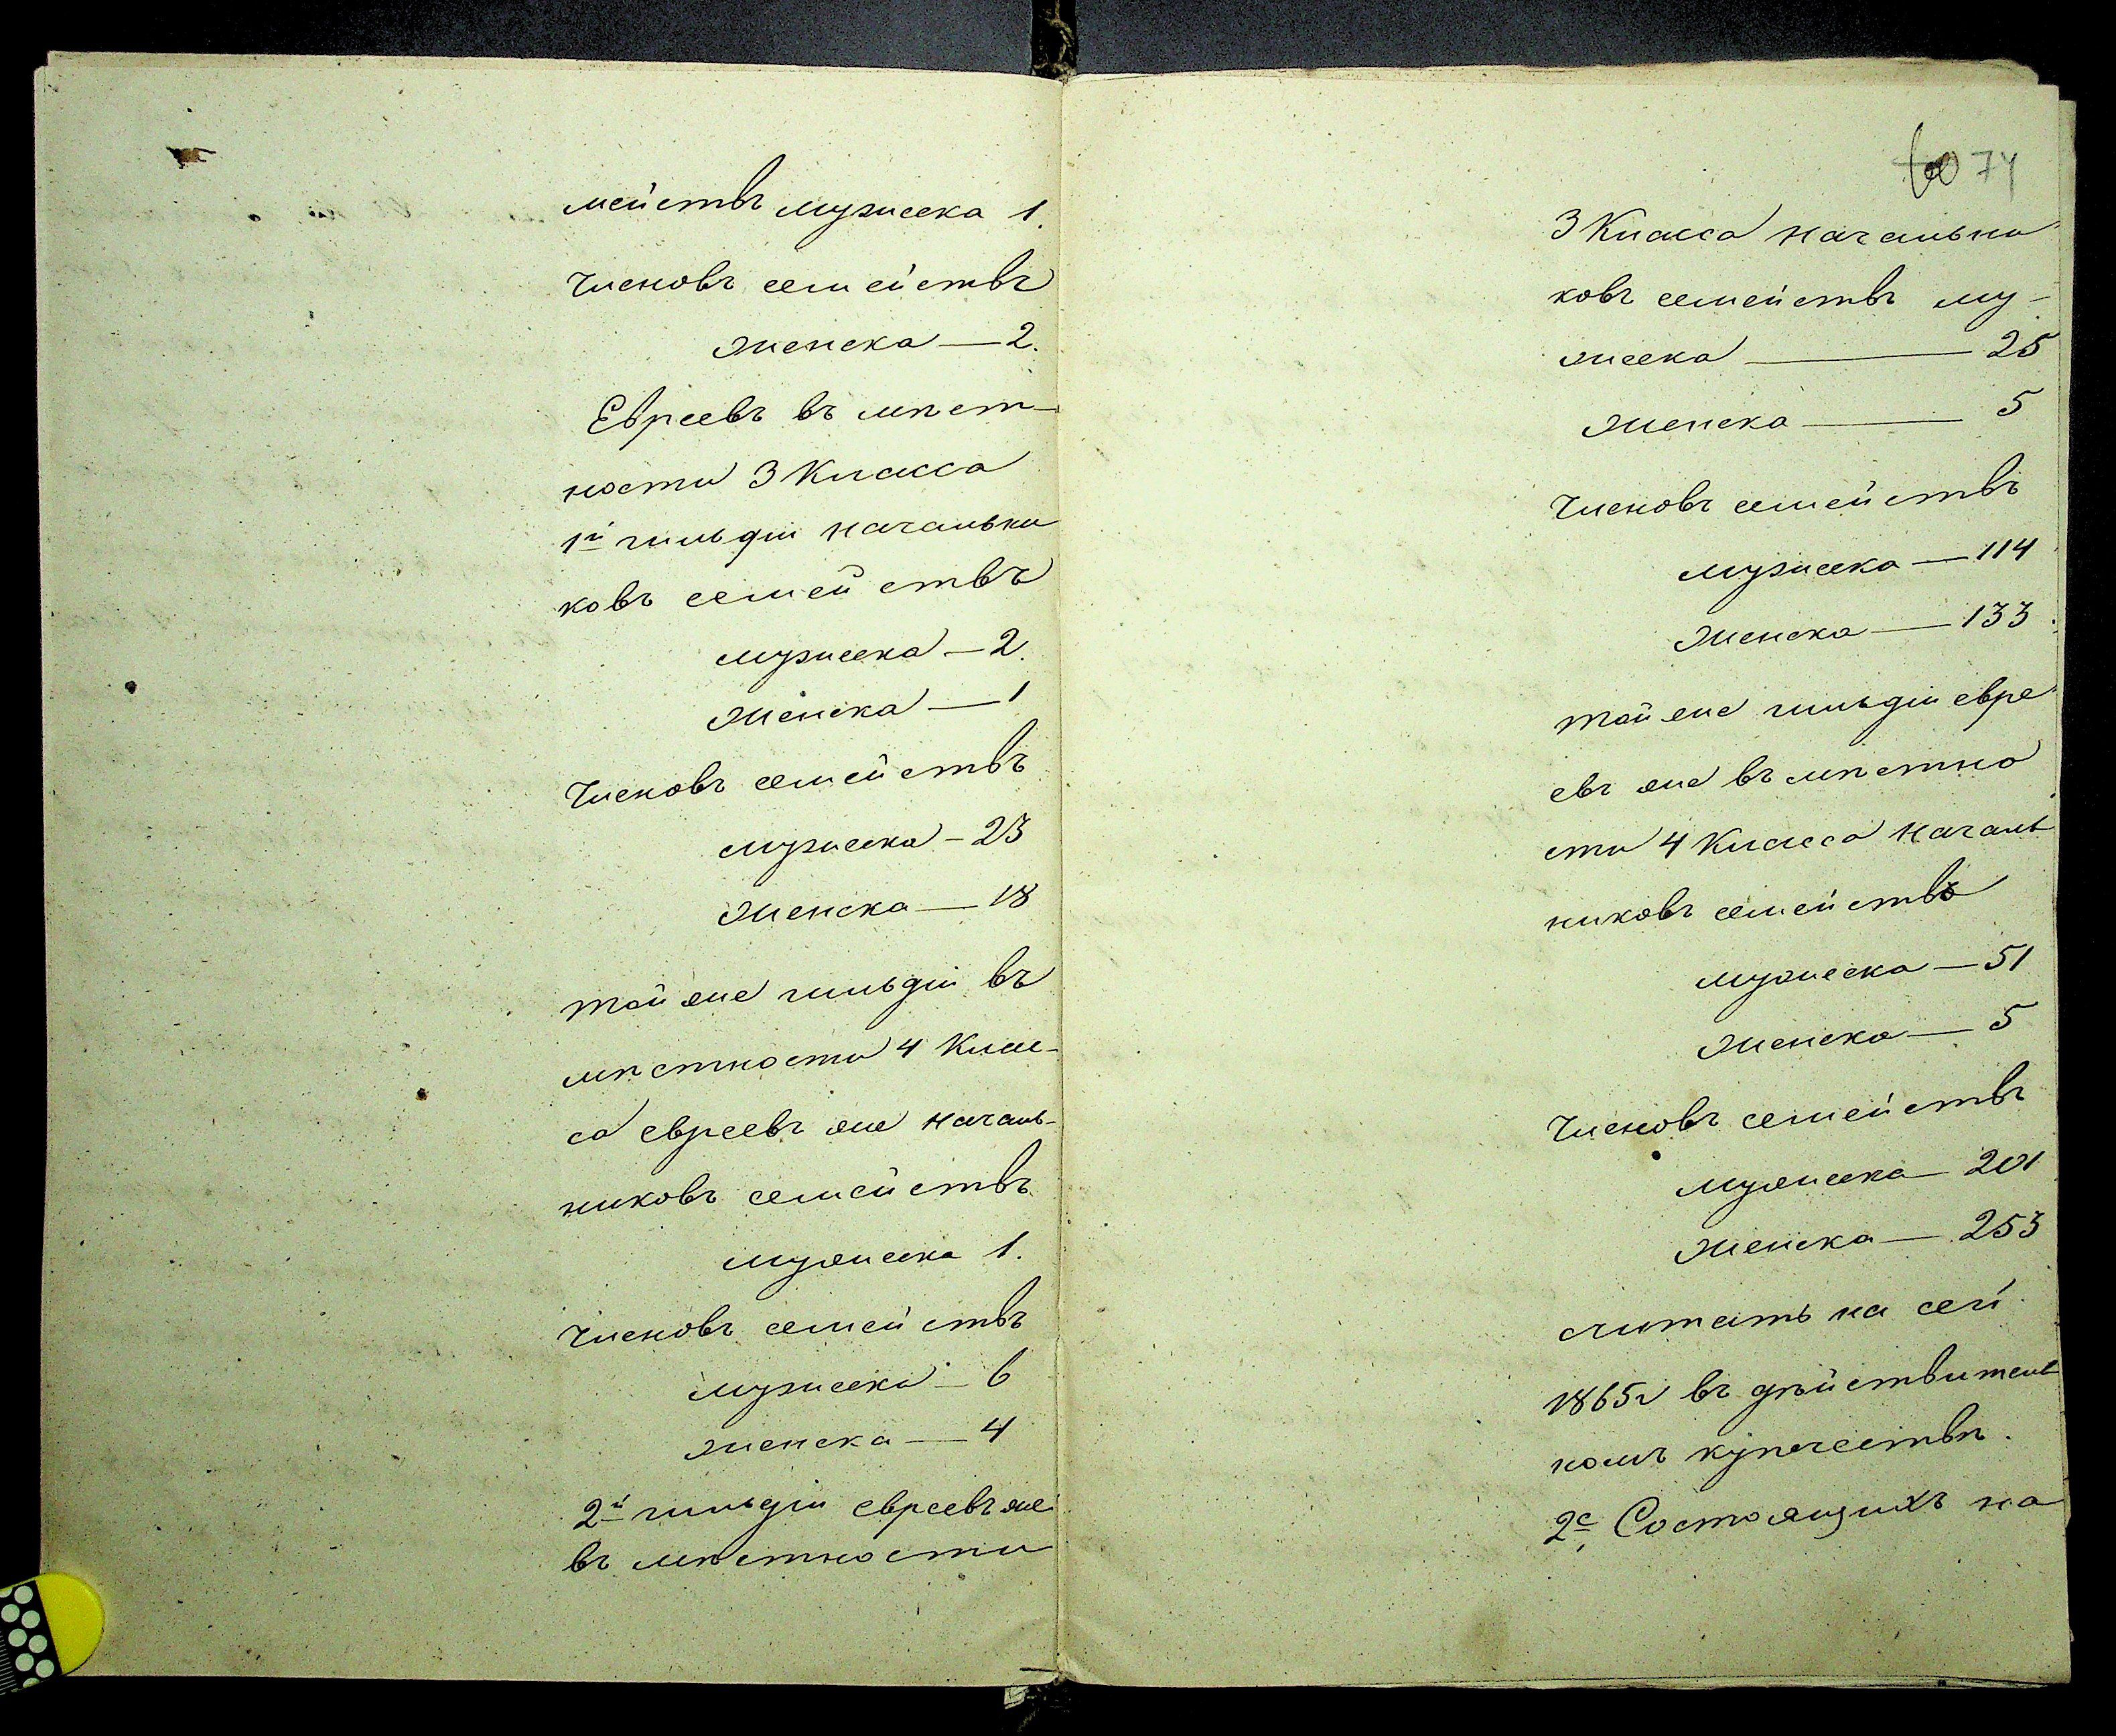 мействъ мужеска 1.
Членовъ семействъ
женска — 2.
Евреевъ въ мѣст-
ности 3 Класса
1й гильдіи начальни
ковъ семействъ
мужеска — 2.
женска — 1
Членовъ семействъ
мужеска — 23
женска — 18
той же гильдіи въ
мѣстности 4 Клас-
са евреевъ же началь-
никовъ семействъ
мужеска 1.
Членовъ семействъ
мужеска — 6
женска — 4
2й гильдіи евреевъ же
въ мѣстности
74
3 Класса начальни
ковъ семействъ му-
жеска — 25
женска — 5
Членовъ семействъ
мужеска — 114
женска — 133.
той же гильдіи евре
евъ же въ мѣстно
сти 4 Класса началь
никовъ семействъ
мужеска — 51
женска — 5
Членовъ семействъ
мужеска — 201
женска — 253
считать на сей
1865г въ дѣйствитель
номъ купечествѣ.
2е, Состоящихъ на